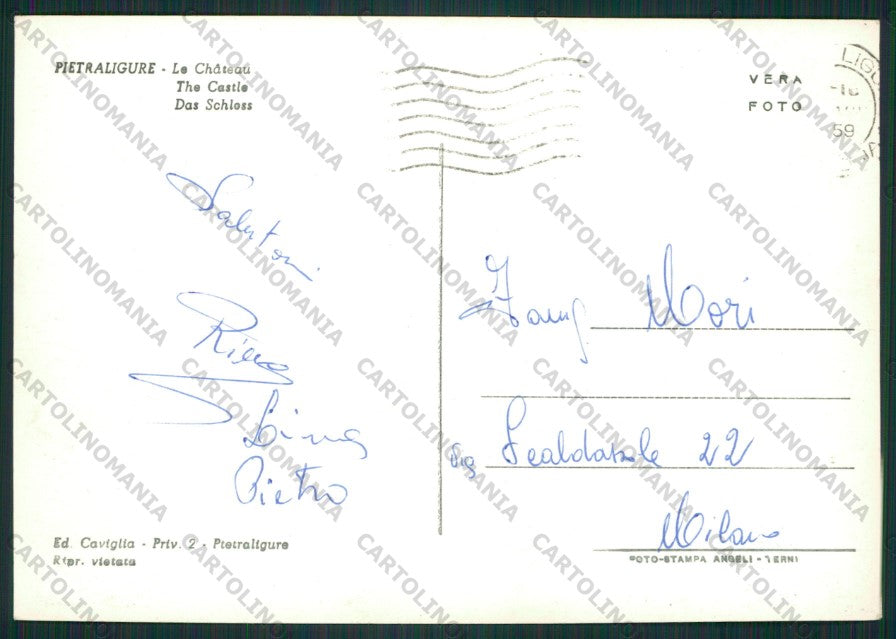 PIETRALIGURE - Le Château
The Castle
Das Schloss
VERA
FOTO
LIGU
59
Salutoni
Piero
Lina
Pietro
Fam Mori
Via 22
Milano
Ed. Caviglia - Priv. 2 - Pietraligure
Ripr. vietata
FOTO-STAMPA ANGELI - TERNI
CARTOLINOMANIA